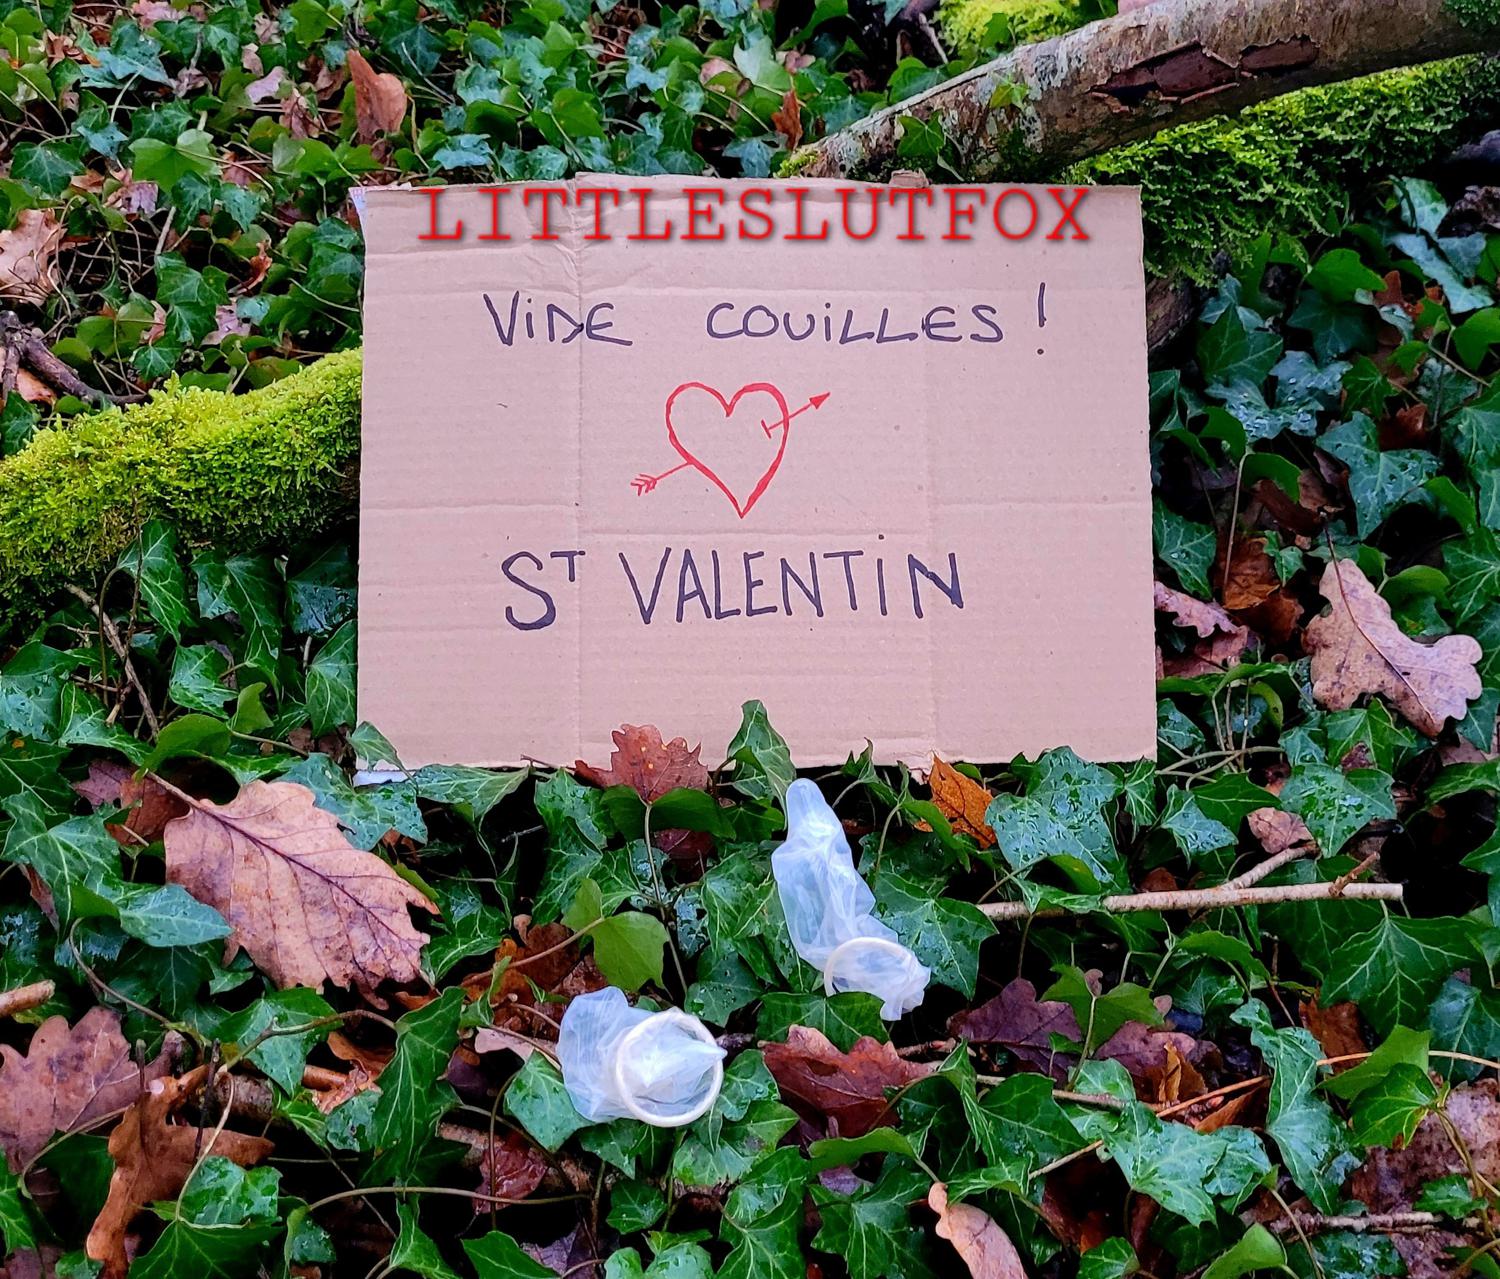 LITTLESLUTFOX
ViDE COUiLLES !
ST VALENTiN